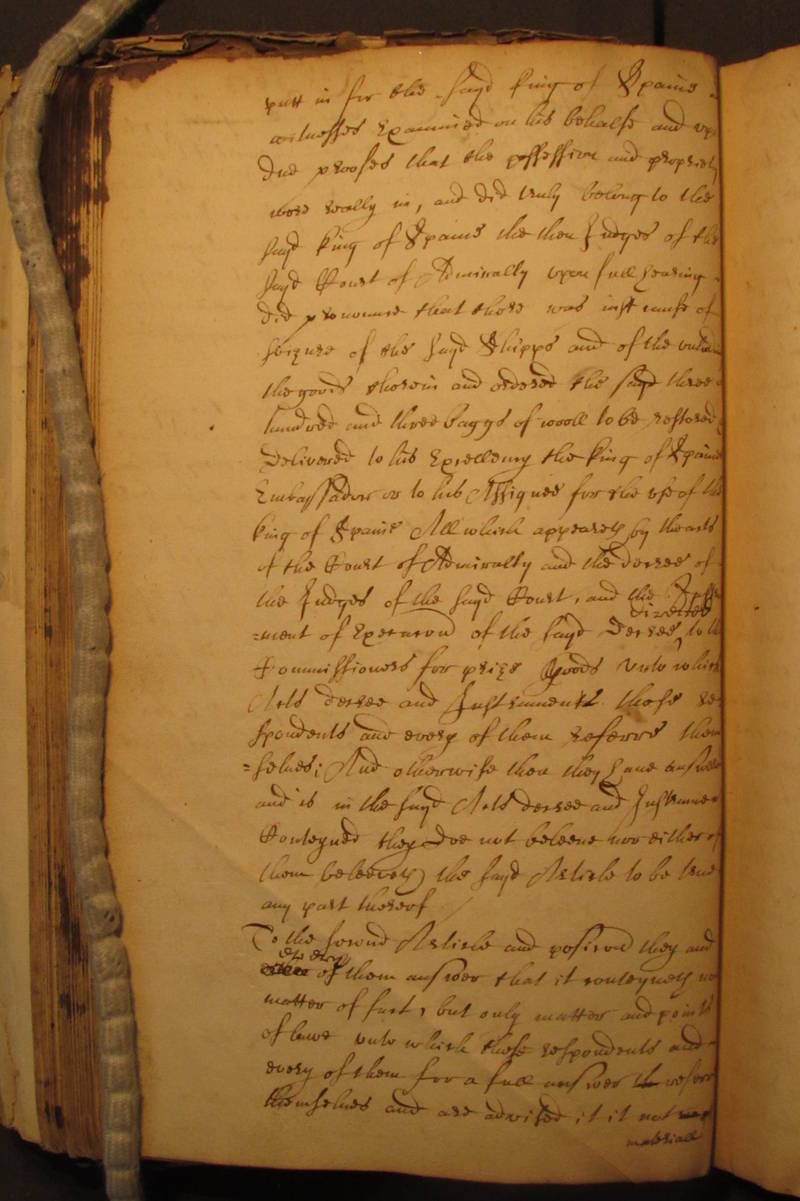 putt in for the sayd king of Spaine
witnesses Examined on his behalfe and vpon
due proofes that the possession and propriety
were really in, and did truly belong to the
sayd king of Spaine the then Judges of the
sayd Court of Admiralty vpon full hearing
did pronounce that there was just cause of
seizure of the sayd Shipps and of the
the goods therein and ordered the sayd three
hundred and three baggs of wooll to be restored
delivered to his Excellency the king of Spaines
Embassador or to his Assignes for the vse of the
king of Spaine All which appeareth by the acts
of the Court of Admiralty and the decree of
the Judges of the sayd Court, and the Instru
=ment of Execution of the sayd Decree directed to the
Commissioners for prize goods vnto which
Acts decree and Instrument these re
spondents and every of them referre them
=selves; And otherwise then they have answered
and is in the sayd Acts decree and Instrument
Conteyned they doe not beleeve nor either of
them beleeveth the sayd Article to be true
any part thereof
To the second Article and position they and
every of them answer that it conteyneth no
matter of fact, but only matter and points
of lawe vnto which these respondents and
every of them for a full answer referr
themselves and are advised it is not
materiall